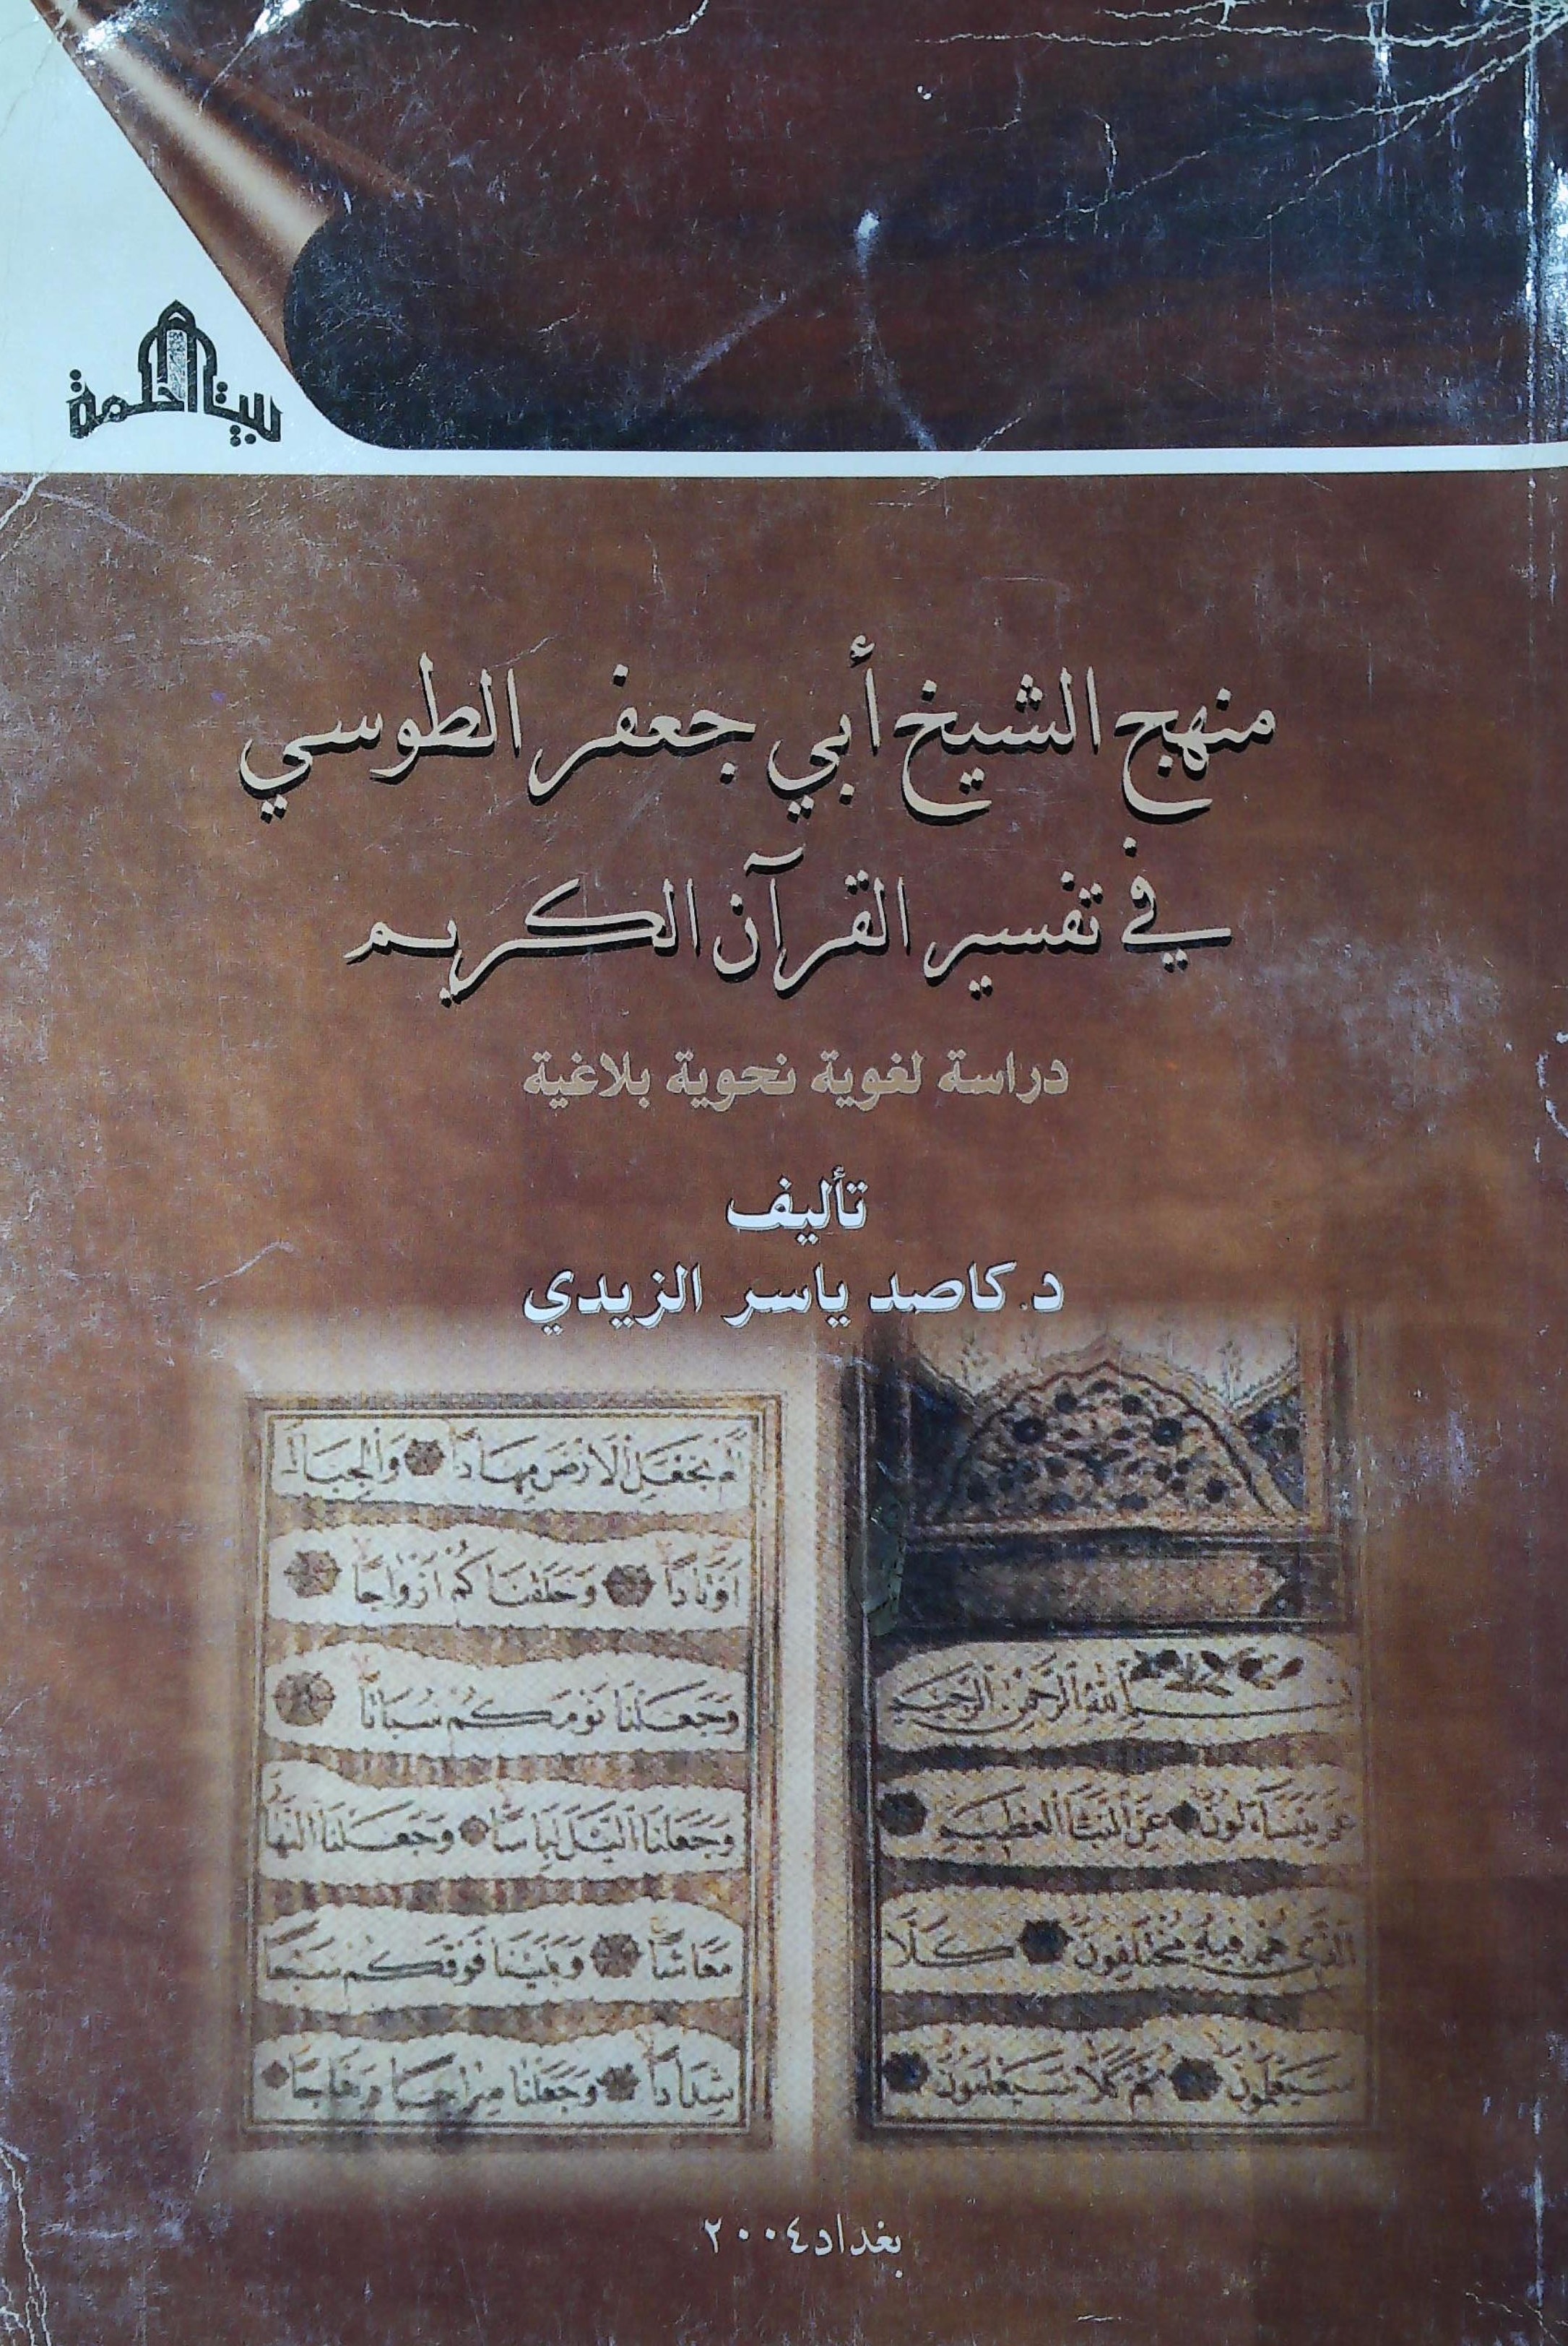 بيت الحكمة
منهج الشيخ أبي جعفر الطوسي
في تفسير القرآن الكريم
دراسة لغوية نحوية بلاغية
تأليف
د. كاصد ياسر الزيدي
بسم الله الرحمن الرحيم
عم يتساءلون عن النبأ العظيم
الذي هم فيه مختلفون كلا
سيعلمون ثم كلا سيعلمون
ألم نجعل الأرض مهادا والجبال
أوتادا وخلقناكم أزواجا
وجعلنا نومكم سباتا
وجعلنا الليل لباسا وجعلنا النها
معاشا وبنينا فوقكم سبعا
شدادا وجعلنا سراجا وهاجا
بغداد ٢٠٠٤